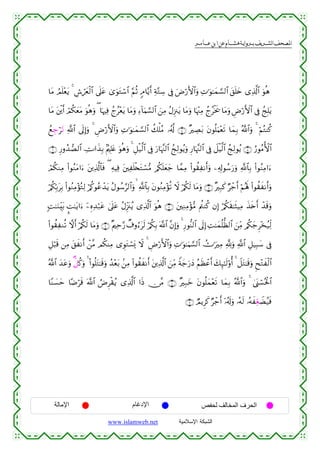 المصحف الشريف برواية هشام عن ابن عامر
وَهُوَ ٱلَّذِى خَلَقَ ٱلسَّمَٰوَٰتِ وَٱلْأَرْضَ فِى سِتَّةِ أَيَّامٍ ثُمَّ ٱسْتَوَىٰ عَلَى ٱلْعَرْشِ ۚ يَعْلَمُ مَا
يَلِجُ فِى ٱلْأَرْضِ وَمَا يَخْرُجُ مِنْهَا وَمَا يَنزِلُ مِنَ ٱلسَّمَآءِ وَمَا يَعْرُجُ فِيهَا ۖ وَهُوَ مَعَكُمْ أَيْنَ مَا
كُنتُمْ ۚ وَٱللَّهُ بِمَا تَعْمَلُونَ بَصِيرٌ ۝٤ لَّهُۥ مُلْكُ ٱلسَّمَٰوَٰتِ وَٱلْأَرْضِ ۚ وَإِلَى ٱللَّهِ تَرْجِعُ
ٱلْأُمُورُ ۝٥ يُولِجُ ٱلَّيْلَ فِى ٱلنَّهَارِ وَيُولِجُ ٱلنَّهَارَ فِى ٱلَّيْلِ ۚ وَهُوَ عَلِيمٌۢ بِذَاتِ ٱلصُّدُورِ ۝٦
ءَامِنُوا۟ بِٱللَّهِ وَرَسُولِهِۦ وَأَنفِقُوا۟ مِمَّا جَعَلَكُم مُّسْتَخْلَفِينَ فِيهِ ۖ فَٱلَّذِينَ ءَامَنُوا۟ مِنكُمْ
وَأَنفَقُوا۟ لَهُمْ أَجْرٌ كَبِيرٌ ۝٧ وَمَا لَكُمْ لَا تُؤْمِنُونَ بِٱللَّهِ ۙ وَٱلرَّسُولُ يَدْعُوكُمْ لِتُؤْمِنُوا۟ بِرَبِّكُمْ
وَقَدْ أَخَذَ مِيثَٰقَكُمْ إِن كُنتُم مُّؤْمِنِينَ ۝٨ هُوَ ٱلَّذِى يُنَزِّلُ عَلَىٰ عَبْدِهِۦٓ ءَايَٰتٍۭ بَيِّنَٰتٍ
لِّيُخْرِجَكُم مِّنَ ٱلظُّلُمَٰتِ إِلَى ٱلنُّورِ ۚ وَإِنَّ ٱللَّهَ بِكُمْ لَرَءُوفٌ رَّحِيمٌ ۝٩ وَمَا لَكُمْ أَلَّا تُنفِقُوا۟
فِى سَبِيلِ ٱللَّهِ وَلِلَّهِ مِيرَٰثُ ٱلسَّمَٰوَٰتِ وَٱلْأَرْضِ ۚ لَا يَسْتَوِى مِنكُم مَّنْ أَنفَقَ مِن قَبْلِ
ٱلْفَتْحِ وَقَٰتَلَ ۚ أُو۟لَٰٓئِكَ أَعْظَمُ دَرَجَةً مِّنَ ٱلَّذِينَ أَنفَقُوا۟ مِنۢ بَعْدُ وَقَٰتَلُوا۟ ۚ وَكُلٌّ وَعَدَ ٱللَّهُ
ٱلْحُسْنَىٰ ۚ وَٱللَّهُ بِمَا تَعْمَلُونَ خَبِيرٌ ۝١٠ مَّن ذَا ٱلَّذِى يُقْرِضُ ٱللَّهَ قَرْضًا حَسَنًا
فَيُضَعِّفَهُۥ لَهُۥ وَلَهُۥٓ أَجْرٌ كَرِيمٌ ۝١١
الحرف المخالف لحفص الإدغام الإمالة
الشبكة الإسلامية www.islamweb.net